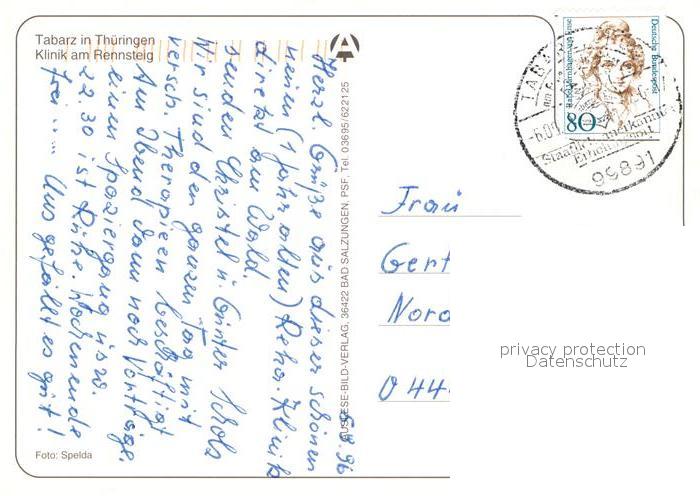 Tabarz in Thüringen
Klinik am Rennsteig
5.8.96
Herzl. Grüße aus dieser schönen
neuen (1 Jahr alten) Reha-Klinik
direkt am Wald.
senden Christel u. Günter Schols
Wir sind den ganzen Tag mit
versch. Therapien beschäftigt
Am Abend dann noch Vorträge,
einen Spaziergang usw.
22.30 ist Ruhe. Wochenende
frei .... Uns gefällt es gut!
Foto: Spelda
AUSLESE-BILD-VERLAG, 36422 BAD SALZUNGEN, PSF, Tel. 03695/622125
Deutsche Bundespost
Rahel Varnhagen von Ense
80
TABARZ
Staatlich anerkannter
Erholungsort
99891
Frau
Gert
Nord
044
privacy protection
Datenschutz